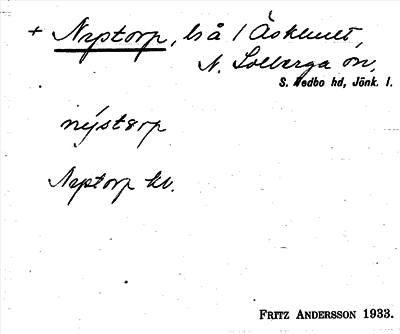 + Nyptorp, bs å 1 Äskhult,
N. Solberga sn,
S. Vedbo hd, Jönk. l.
nýstɷrp
Nyptorp kv.
FRITZ ANDERSSON 1933.